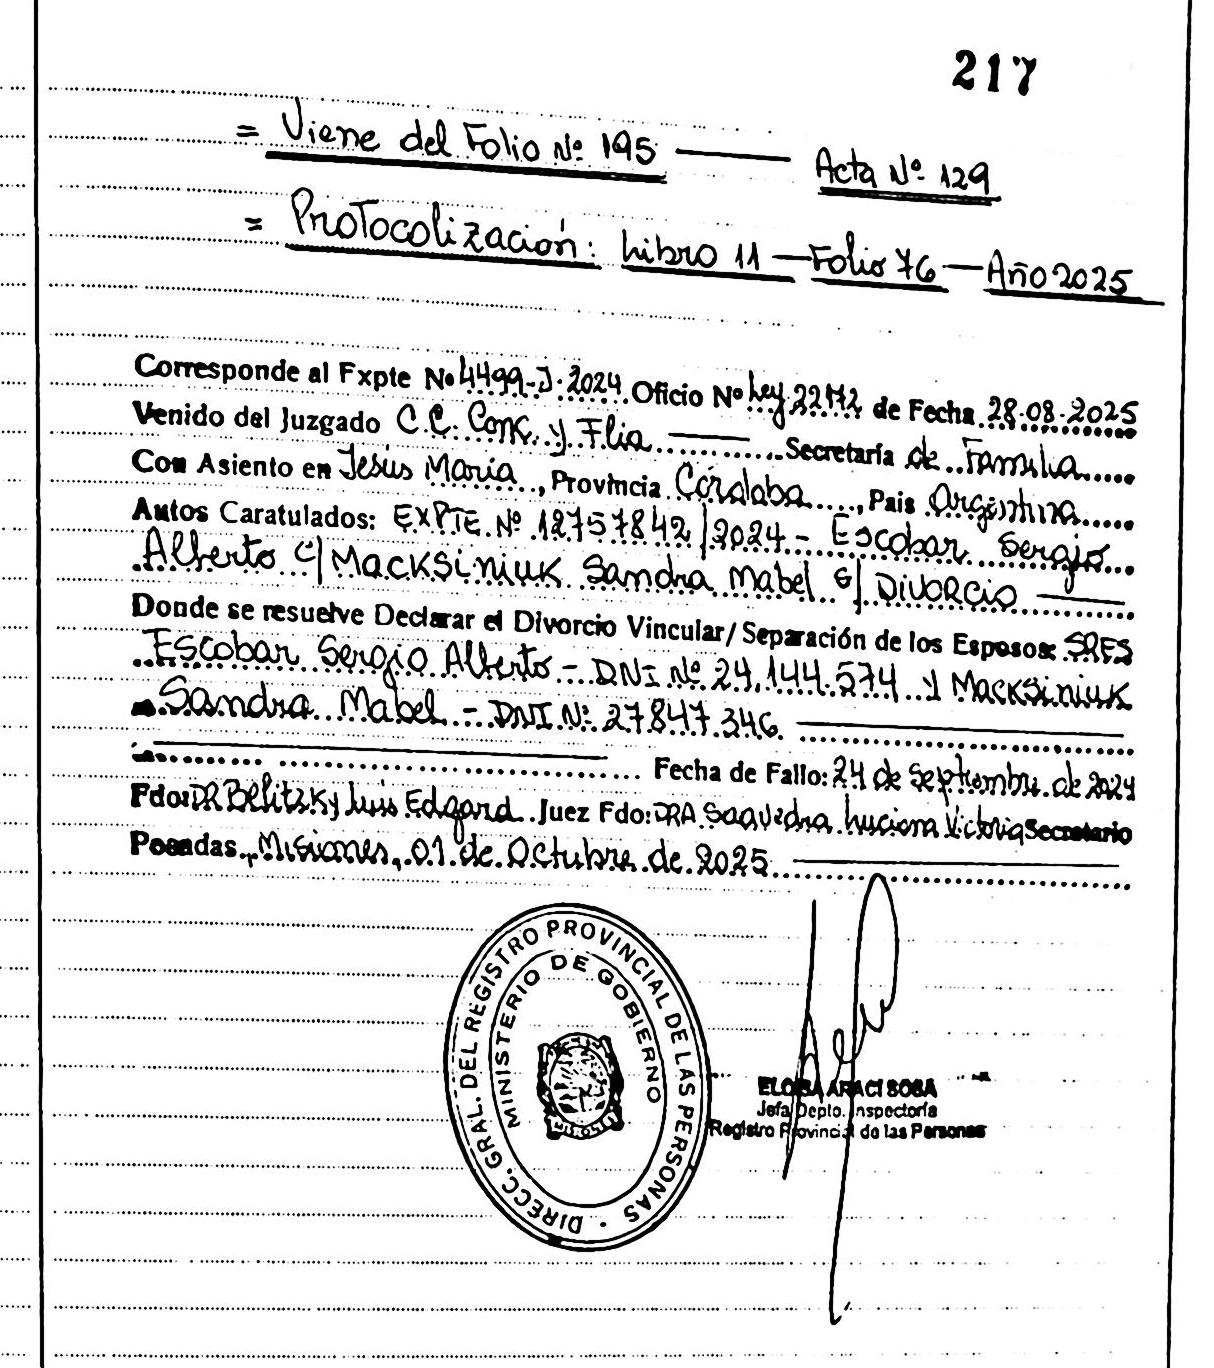 217
= Viene del Folio Nº 195 — Acta Nº 129
= Protocolización: Libro 11 — Folio 76 — Año 2025
Corresponde al Expte Nº 4499-J-2024 Oficio Nº Ley 22172 de Fecha 28-08-2025
Venido del Juzgado C.C. Conc. y Flia — Secretaría de Familia
Con Asiento en Jesús María, Provincia Córdoba, Pais Argentina
Autos Caratulados: EXPTE Nº 12757842/2024 - Escobar Sergio
Alberto c/ Macksiniuk Sandra Mabel s/ Divorcio —
Donde se resuelve Declarar el Divorcio Vincular/Separación de los Esposos: SRES
Escobar Sergio Alberto - DNI Nº 24.144.574 y Macksiniuk
Sandra Mabel - DNI Nº 27847.346. —
Fecha de Fallo: 24 de Septiembre de 2024
Fdo: DR Belitzky Luis Edgard Juez Fdo: DRA Saavedra Luciana Victoria Secretario
Posadas, Misiones, 01 de Octubre de 2025 —
DIRECC. GRAL. DEL REGISTRO PROVINCIAL DE LAS PERSONAS
MINISTERIO DE GOBIERNO
ELOISA ARACI SOSA
Jefa Depto. Inspectoría
Registro Provincial de las Personas